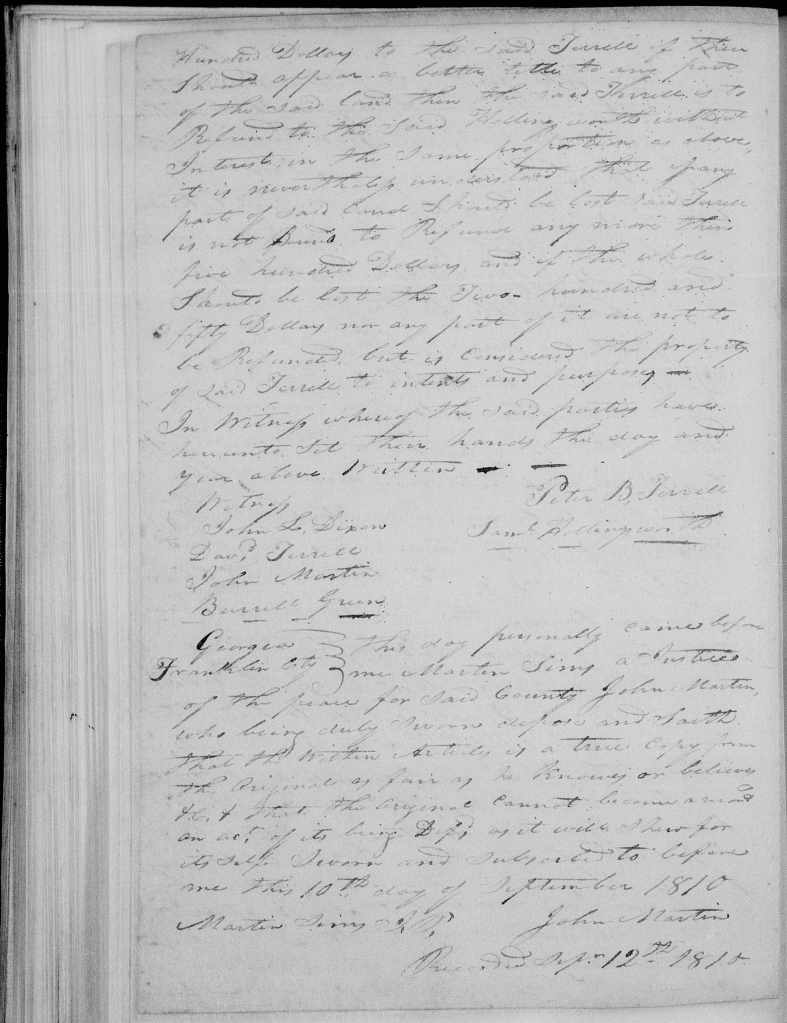 Hundred Dollars to the said Terrell if their
Should appear a better title to any part
of the said land then the said Therrell is to
Refund to the Said Hollingsworth without
Interest in the Same proportion as above,
it is nevertheless understood that if any
part of said Land Should be lost said Terrell
is not bund to Refund any more then
five hundred Dollars and if the whole
Should be lost the Two hundred and
fifty Dollars nor any part of it are not to
be Refunded but is Considered the property
of said Terrell to intents and purposes
In Witness whereof the said parties have
hereunto Set their hands the day and
year above Written
Witness
Peter B. Terrell
John L. Dixon
Saml. Hollingsworth
David Terrell
John Martin
Burrell Green
Georgia } this day personally came before
Franklin Cty } me Martin Sims a Justice
of the peace for said County John Martin,
who being duly Sworn depose and Saith
that the Within Article is a true Copy from
the Original as fair as he Knows or believes
&c. & that the Original Cannot be
on act. of its being as it will Shew for
its Self Sworn and Subscribed to before
me this 10th day of September 1810
Martin Sims J.P.
John Martin
Recorded Sepr. 12th 1810